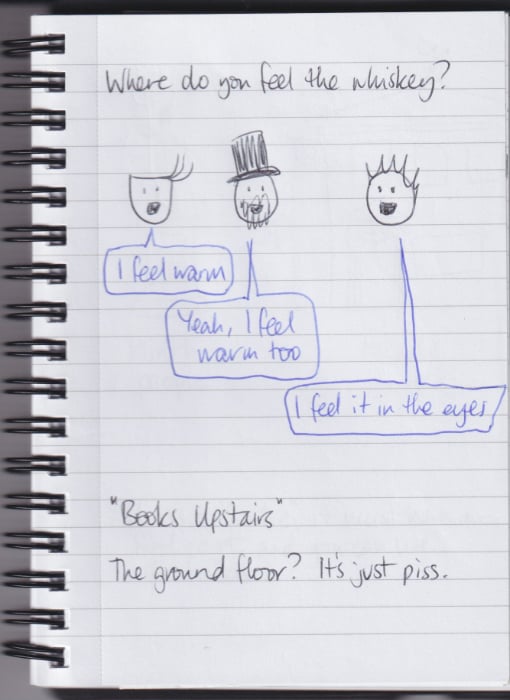 Where do you feel the whiskey?
I feel warm
Yeah, I feel
warm too
I feel it in the eyes
"Books Upstairs"
The ground floor? It's just piss.